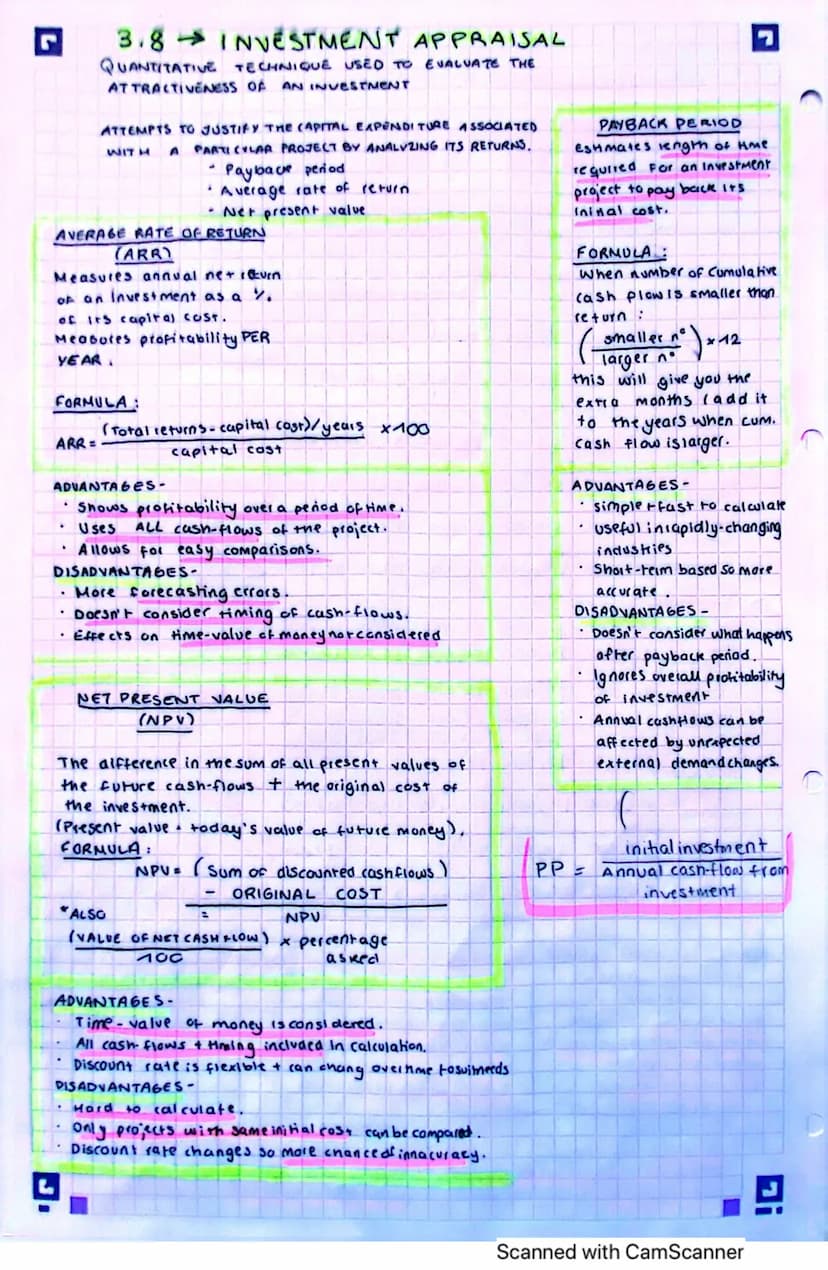 3.8 → INVESTMENT APPRAISAL
QUANTITATIVE TECHNIQUE USED TO EVALUATE THE
ATTRACTIVENESS OF AN INVESTMENT
ATTEMPTS TO JUSTIFY THE CAPITAL EXPENDITURE ASSOCIATED
WITH A PARTICULAR PROJECT BY ANALYZING ITS RETURNS.
· Payback period
· Average rate of return
· Net present value
AVERAGE RATE OF RETURN
(ARR)
Measures annual net return
of an investment as a %
of its capital cost.
Measures profitability PER
YEAR.
FORMULA:
ARR = (Total returns - capital cost)/years x100
capital cost
ADVANTAGES-
· Shows profitability over a period of time.
· Uses ALL cash-flows of the project.
· Allows for easy comparisons.
DISADVANTAGES-
· More forecasting errors.
· Doesn't consider timing of cash-flows.
· Effects on time-value of money not considered
NET PRESENT VALUE
(NPV)
The difference in the sum of all present values of
the future cash-flows + the original cost of
the investment.
(Present value = today's value of future money).
FORMULA:
NPV = (Sum of discounted cashflows)
- ORIGINAL COST
= NPV
*ALSO
(VALUE OF NET CASH FLOW) x percentage
100 asked
ADVANTAGES-
· Time-value of money is considered.
· All cash-flows + timing included in calculation.
· Discount rate is flexible + can chang overtime to suit needs
DISADVANTAGES-
· Hard to calculate.
· Only projects with same initial cost can be compared.
· Discount rate changes so more chance of innacuracy.
PAYBACK PERIOD
Estimates length of time
required for an investment
project to pay back its
initial cost.
FORMULA:
When number of cumulative
cash flow is smaller than
return:
(smaller n°) x12
larger n°
this will give you the
extra months (add it
to the years when cum.
cash flow is larger.
ADVANTAGES-
· simple + fast to calculate
· useful in rapidly-changing
industries
· Short-term based so more
accurate.
DISADVANTAGES-
· Doesn't consider what happens
after payback period.
· Ignores overall profitability
of investment
· Annual cashflows can be
affected by unexpected
external demand changes.
(
PP = initial investment
Annual cash-flow from
investment
Scanned with CamScanner